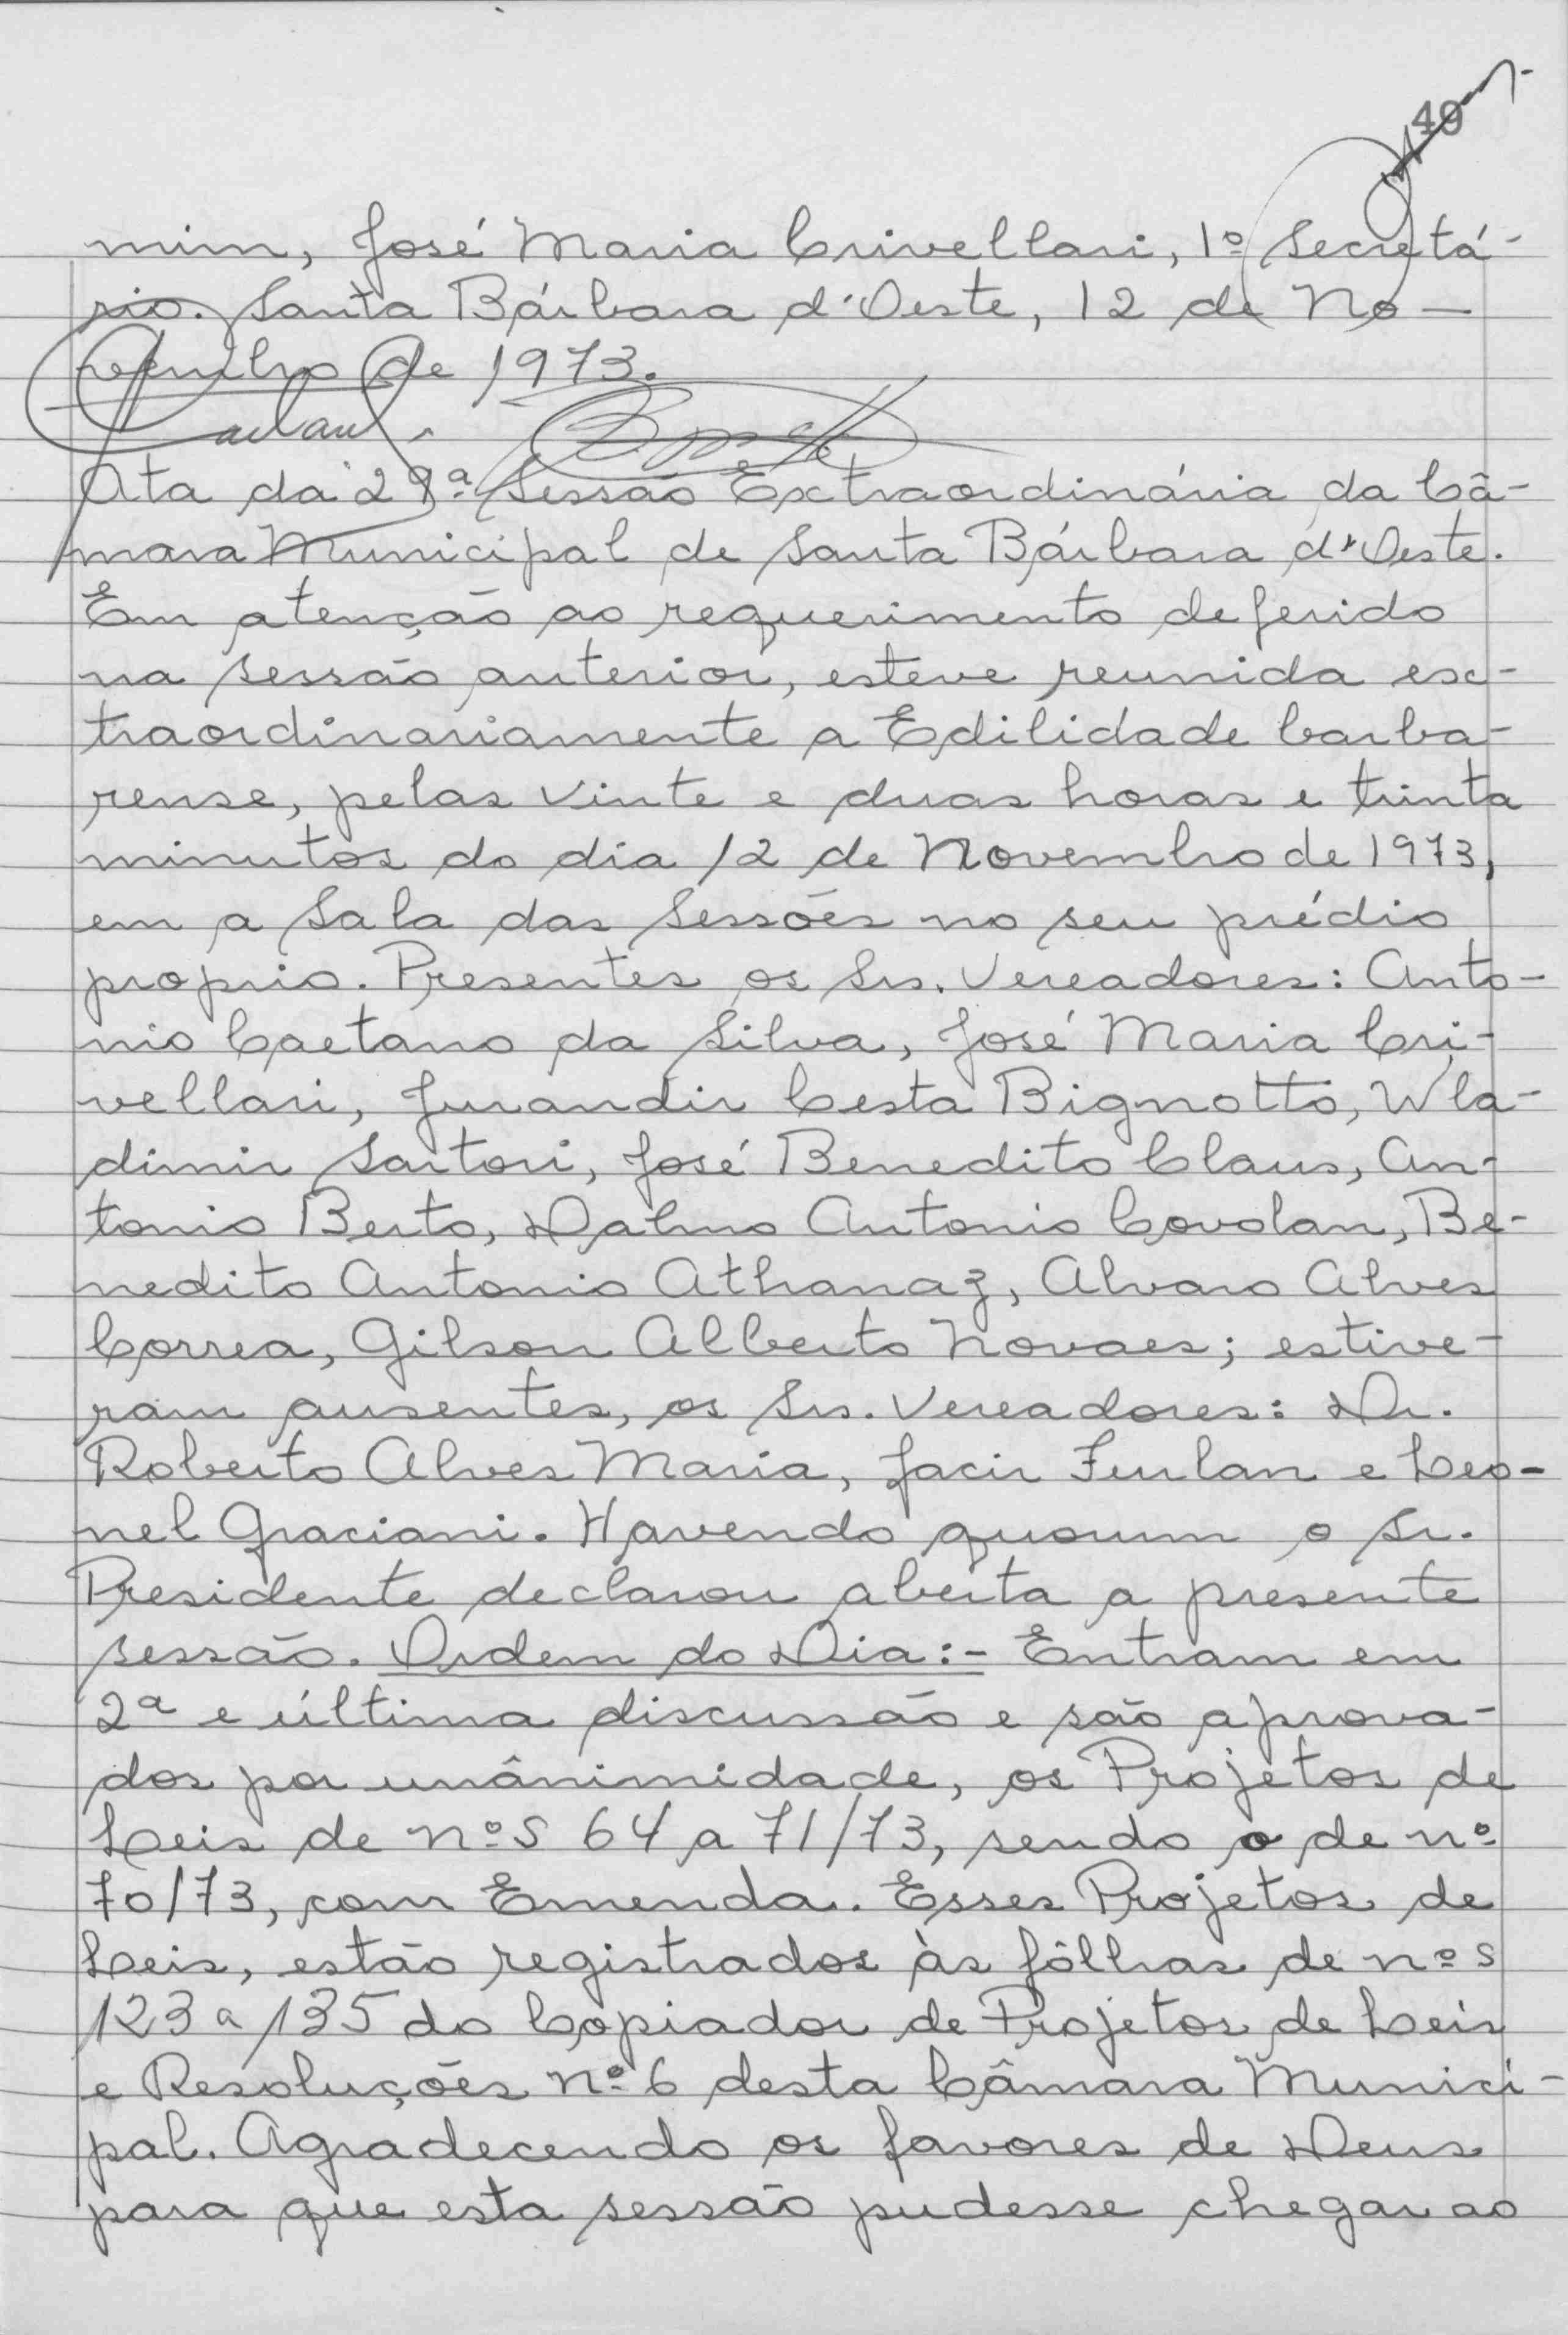 49
mim, José Maria Crivellari, 1º Secretá-
rio. Santa Bárbara d'Oeste, 12 de No-
vembro de 1973.
Ata da 29ª Sessão Extraordinária da Câ-
mara Municipal de Santa Bárbara d'Oeste.
Em atenção ao requerimento deferido
na sessão anterior, esteve reunida ex-
traordinariamente a Edilidade barba-
rense, pelas vinte e duas horas e trinta
minutos do dia 12 de Novembro de 1973,
em a Sala das Sessões no seu prédio
proprio. Presentes os Srs. Vereadores: Anto-
nio Caetano da Silva, José Maria Cri-
vellari, Jurandir Cesta Bignotto, Wla-
dimir Sartori, José Benedito Claus, An-
tonio Berto, Dalmo Antonio Covolan, Be-
nedito Antonio Athanaz, Alvaro Alves
Correa, Gilson Alberto Novaes; estive-
ram ausentes, os Srs. Vereadores: Dr.
Roberto Alves Maria, Jacir Furlan e Leo-
nel Graciani. Havendo quorum o Sr.
Presidente declarou aberta a presente
sessão. Ordem do Dia:- Entram em
2ª e última discussão e são aprova-
dos por unânimidade, os Projetos de
Leis de nºs 64 a 71/73, sendo o de nº
70/73, com Emenda. Esses Projetos de
Leis, estão registrados às fôlhas de nºs
123 a 135 do Copiador de Projetos de Leis
e Resoluções nº 6 desta Câmara Munici-
pal. Agradecendo os favores de Deus
para que esta sessão pudesse chegar ao